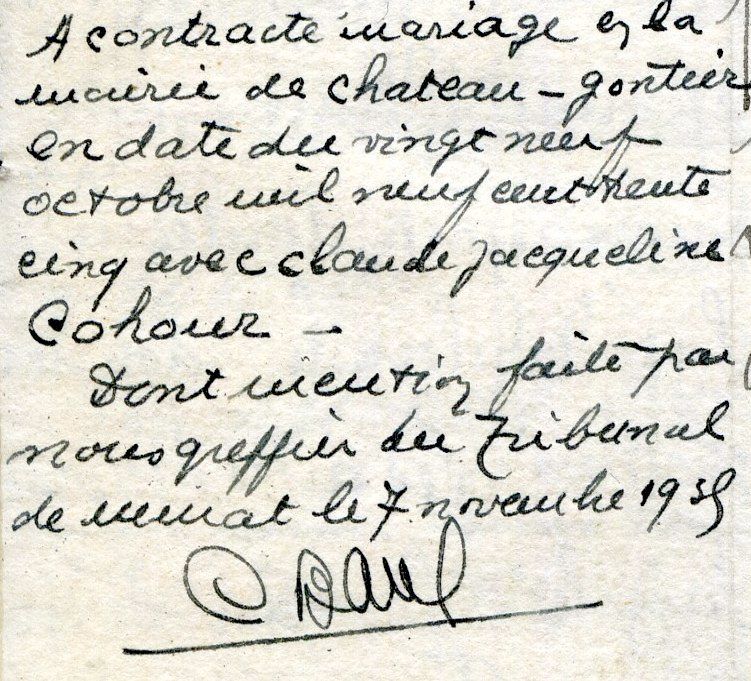 A contracté mariage en la
mairie de chateau - gontier
en date du vingt neuf
octobre mil neuf cent trente
cinq avec claude jacqueline
Cohour -
Dont mention faite par
nous greffier du Tribunal
de murat le 7 novembre 1935